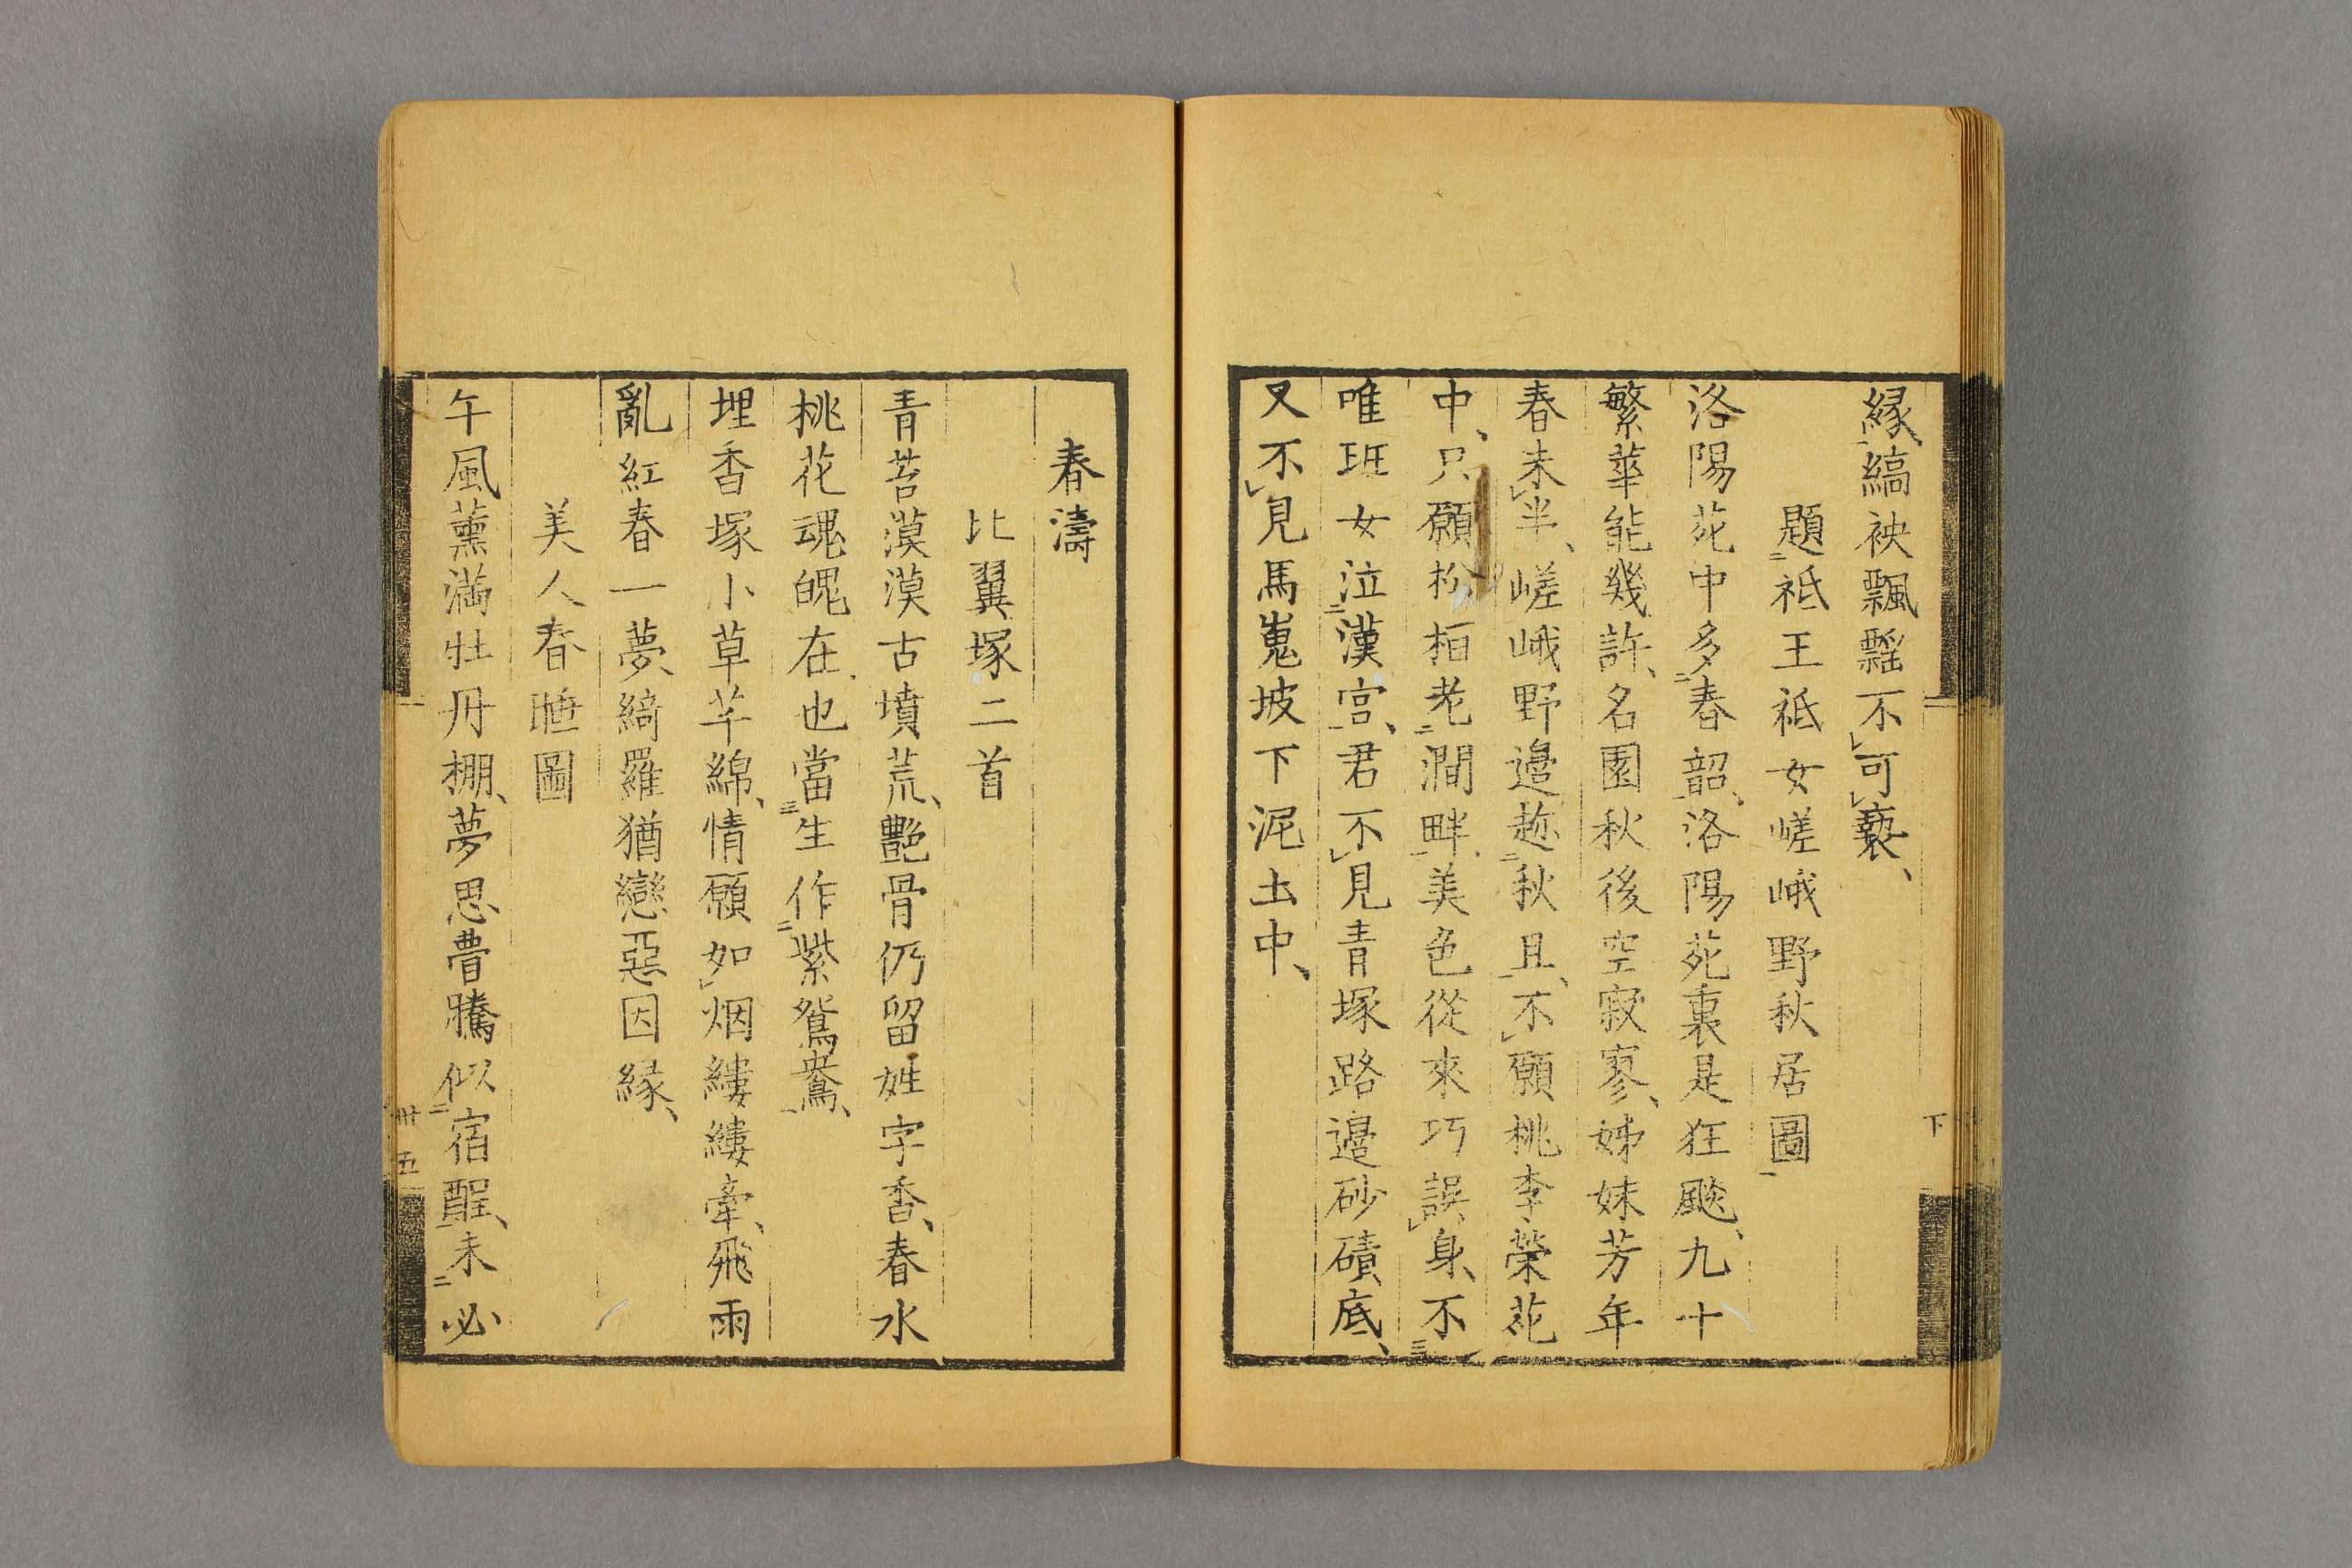 縁、縞袂飄飖不可褻、
題祗王祗女嵯峨野秋居圖
洛陽苑中多春韶、洛陽苑裏是狂飈、九十
繁華能幾許、名園秋後空寂寥、姊妹芳年
春未半、嵯峨野邉趂秋且、不願桃李榮花
中、只願松栢老澗畔、美色從來巧誤身、不
唯班女泣漢宮、君不見青塚路邉砂磧底、
又不見馬嵬坡下泥土中、
下
春濤
比翼塚二首
青苔漠漠古墳荒、艷骨仍留姓字香、春水
桃花魂魄在也當生作紫鴛鴦、
埋香塚小草芊綿、情願如烟縷縷牽、飛雨
亂紅春一夢、綺羅猶戀惡因縁、
美人春睡圖
午風薰滿牡丹棚、夢思瞢騰似宿酲、未必
卅五